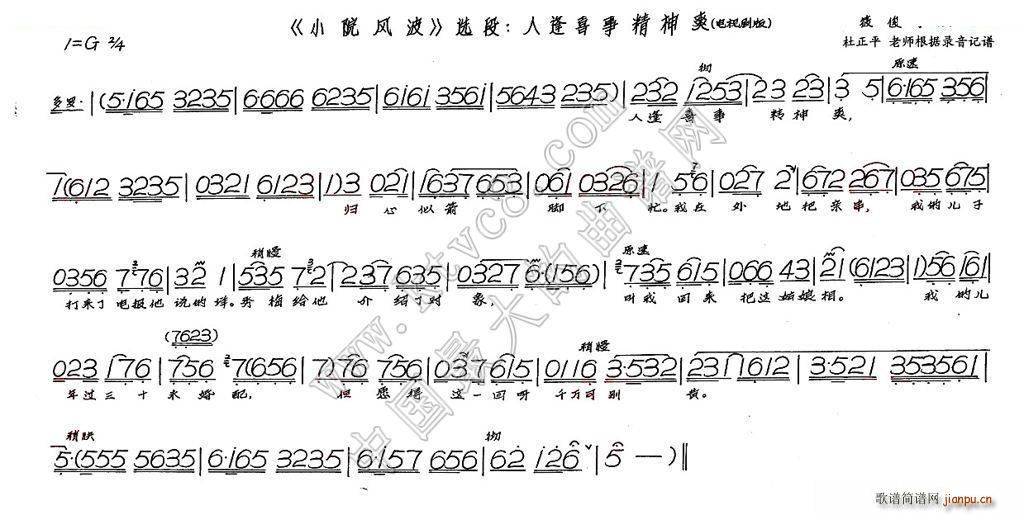 《小院风波》选段：人逢喜事精神爽(电视剧版)
1=G 2/4
杜正平 老师根据录音记谱
彻 原速
多罗·|(5·i65 3235|6·666 6235|6i6i 356i|5643 235)|232 i253|23 23|3 5|6·i65 356|
人逢 喜事 精神 爽，
7(612 3235|0321 6123|1)3 021|1637 653|061 0326|1 56|027 2|672 267|035 675|
归 心 似箭 脚 下 忙。我在 外 地把亲串，我的儿子
稍慢 原速
0356 776|32 1|535 72|237 635|0327 6·(156)|735 615|066 43|21 (6123|1)56 161|
打来了电报他说的详。秀梅给他 介 绍了对 象， 叫我 回来 把这 姑娘相。 我的儿
(7623)
稍慢
023 176|756 7(656|7)76 756|037 615|0116 3·532|231 1612|3·521 353561|
年过三十未婚配， 但愿得 这一回呀 千万可别 黄。
稍快 彻
5·(555 5635|6·i65 3235|6·i57 656|62 i26|5 —)‖
www.ktvc8.com
中国最大的曲谱网
歌谱简谱网 jianpu.cn